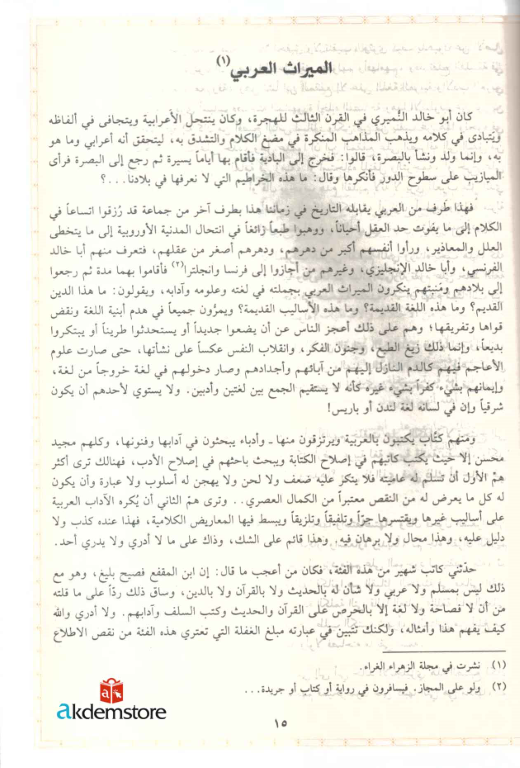 الميراث العربي(١)
كان أبو خالد النُّميري في القرن الثالث للهجرة، وكان ينتحل الأعرابية ويتجافى في ألفاظه
ويتبادى في كلامه ويذهب المذاهب المنكرة في مضغ الكلام والتشدق به، ليتحقق أنه أعرابي وما هو
به، وإنما ولد ونشأ بالبصرة، قالوا: فخرج إلى البادية فأقام بها أياماً يسيرة ثم رجع إلى البصرة فرأى
الميازيب على سطوح الدور فأنكرها وقال: ما هذه الخراطيم التي لا نعرفها في بلادنا...؟
فهذا طرف من العربي يقابله التاريخ في زماننا هذا بطرف آخر من جماعة قد رُزقوا اتساعاً في
الكلام إلى ما يفوت حد العقل أحياناً، ووهبوا طبعاً زائغاً في انتحال المدنية الأوروبية إلى ما يتخطى
العلل والمعاذير، ورأوا أنفسهم أكبر من دهرهم، ودهرهم أصغر من عقلهم، فتعرف منهم أبا خالد
الفرنسي، وأبا خالد الإنجليزي، وغيرهم من أجازوا إلى فرنسا وانجلترا(٢) فأقاموا بهما مدة ثم رجعوا
إلى بلادهم ومنبتهم ينكرون الميراث العربي بجملته في لغته وعلومه وآدابه، ويقولون: ما هذا الدين
القديم؟ وما هذه اللغة القديمة؟ وما هذه الأساليب القديمة؟ ويمرُّون جميعاً في هدم أبنية اللغة ونقض
قواها وتفريقها؛ وهم على ذلك أعجز الناس عن أن يضعوا جديداً أو يستحدثوا طريفاً أو يبتكروا
بديعاً، وإنما ذلك زيغ الطبع، وجنون الفكر، وانقلاب النفس عكساً على نشأتها، حتى صارت علوم
الأعاجم فيهم كالدم النازل إليهم من آبائهم وأجدادهم وصار دخولهم في لغة خروجاً من لغة،
وإيمانهم بشيء كفراً بشيء غيره كأنه لا يستقيم الجمع بين لغتين وأدبين. ولا يستوي لأحدهم أن يكون
شرقياً وإن في لسانه لغة لندن أو باريس!
ومنهم كتَّاب يكتبون بالعربية ويرتزقون منها - وأدباء يبحثون في آدابها وفنونها، وكلهم مجيد
محسن إلا حيث يكتب كاتبهم في إصلاح الكتابة ويبحث باحثهم في إصلاح الأدب، فهنالك ترى أكثر
همّ الأول أن تسلم له عاميته فلا ينكر عليه ضعف ولا لحن ولا يهجن له أسلوب ولا عبارة وأن يكون
له كل ما يعرض له من النقص معتبراً من الكمال العصري.. وترى هم الثاني أن يُكره الآداب العربية
على أساليب غيرها ويقتسرها جرّاً وتلفيقاً وتلزيقاً ويبسط فيها المعاريض الكلامية، فهذا عنده كذب ولا
دليل عليه، وهذا محال ولا برهان فيه. وهذا قائم على الشك، وذاك على ما لا أدري ولا يدري أحد.
حدّثني كاتب شهير من هذه الفئة، فكان من أعجب ما قال: إن ابن المقفع فصيح بليغ، وهو مع
ذلك ليس بمسلم ولا عربي ولا شأن له بالحديث ولا بالقرآن ولا بالدين، وساق ذلك ردّاً على ما قلته
من أن لا فصاحة ولا لغة إلا بالحرص على القرآن والحديث وكتب السلف وآدابهم. ولا أدري والله
كيف يفهم هذا وأمثاله، ولكنك تتبين في عبارته مبلغ الغفلة التي تعتري هذه الفئة من نقص الاطلاع
(١) نشرت في مجلة الزهراء الغراء.
(٢) ولو على المجاز. فيسافرون في رواية أو كتاب أو جريدة...
akdemstore
١٥